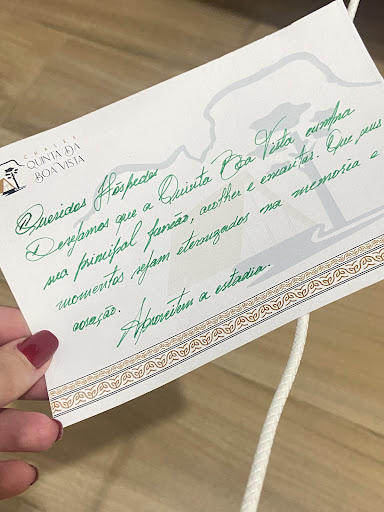 CHALÉS
QUINTA DA
BOA VISTA
Queridos Hóspedes
Desejamos que a Quinta Boa Vista cumpra
sua principal função, acolher e encantar. Que seus
momentos sejam eternizados na memória e
coração.
Aproveitem a estadia.